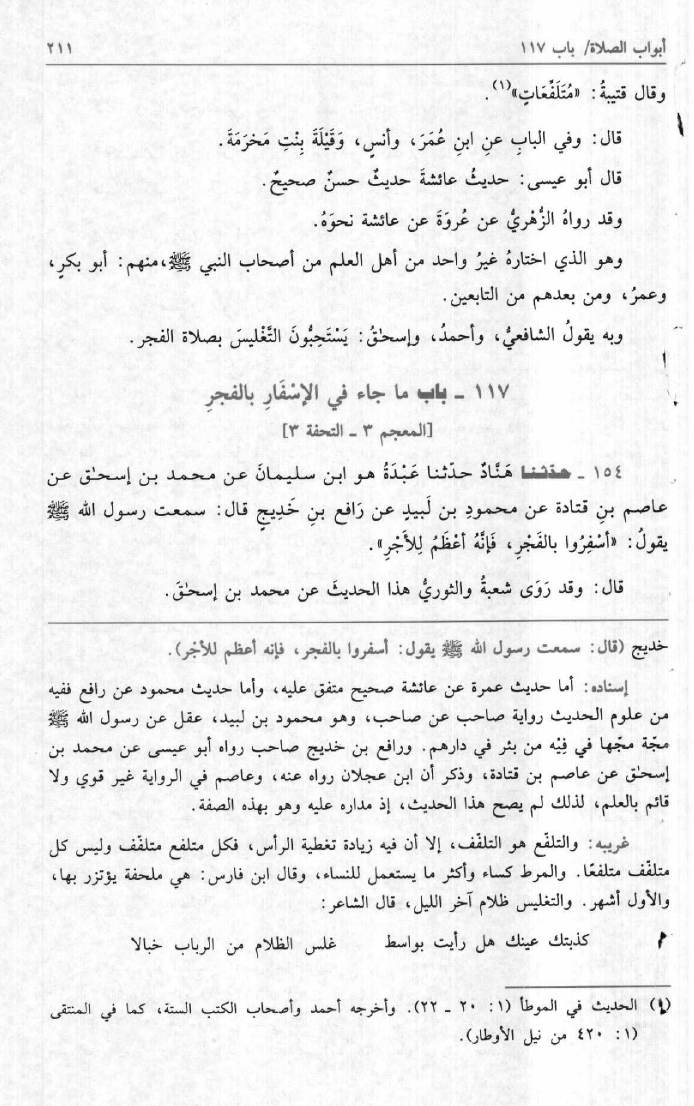 أبواب الصلاة/ باب ١١٧
٢١١
وقال قتيبةُ: «مُتَلَفِّعَاتٍ»(١).
قال: وفي البابِ عنِ ابنِ عُمَرَ، وأنسٍ، وَقَيْلَةَ بِنْتِ مَخرَمَةَ.
قال أبو عيسى: حديثُ عائشةَ حديثٌ حسنٌ صحيحٌ.
وقد رواهُ الزُّهْريُّ عن عُروَةَ عن عائشة نحوَهُ.
وهو الذي اختارهُ غيرُ واحد من أهل العلم من أصحاب النبي ﷺ،منهم: أبو بكرٍ،
وعمرُ، ومن بعدهم من التابعين.
وبه يقولُ الشافعيُّ، وأحمدُ، وإسحٰقُ: يَسْتَحِبُّونَ التَّغْليسَ بصلاة الفجر.
١١٧ ـ باب ما جاء في الإسْفَارِ بالفجرِ
[المعجم ٣ ـ التحفة ٣]
١٥٤ ـ حدّثنا هَنَّادٌ حدّثنا عَبْدَةُ هو ابن سليمانَ عن محمد بن إسحٰق عن
عاصم بنِ قتادة عن محمودِ بن لَبيدٍ عن رَافع بنِ خَدِيجٍ قال: سمعت رسول الله ﷺ
يقولُ: «أسْفِرُوا بالفَجْرِ، فَإنَّهُ أعْظَمُ لِلأَجْرِ».
قال: وقد رَوَى شعبةُ والثوريُّ هذا الحديثَ عن محمد بن إسحٰقَ.
خديج (قال: سمعت رسول الله ﷺ يقول: أسفروا بالفجر، فإنه أعظم للأجْر).
إسناده: أما حديث عمرة عن عائشة صحيح متفق عليه، وأما حديث محمود عن رافع ففيه
من علوم الحديث رواية صاحب عن صاحب، وهو محمود بن لبيد، عقل عن رسول الله ﷺ
مجّة مجّها في فِيْه من بئر في دارهم. ورافع بن خديج صاحب رواه أبو عيسى عن محمد بن
إسحٰق عن عاصم بن قتادة، وذكر أن ابن عجلان رواه عنه، وعاصم في الرواية غير قوي ولا
قائم بالعلم، لذلك لم يصح هذا الحديث، إذ مداره عليه وهو بهذه الصفة.
غريبه: والتلفّع هو التلفّف، إلا أن فيه زيادة تغطية الرأس، فكل متلفع متلفّف وليس كل
متلفّف متلفعًا. والمرط كساء وأكثر ما يستعمل للنساء، وقال ابن فارس: هي ملحفة يؤتزر بها،
والأول أشهر. والتغليس ظلام آخر الليل، قال الشاعر:
كذبتك عينك هل رأيت بواسط غلس الظلام من الرباب خبالا
(١) الحديث في الموطأ (١: ٢٠ ـ ٢٢). وأخرجه أحمد وأصحاب الكتب الستة، كما في المنتقى
(١: ٤٢٠ من نيل الأوطار).